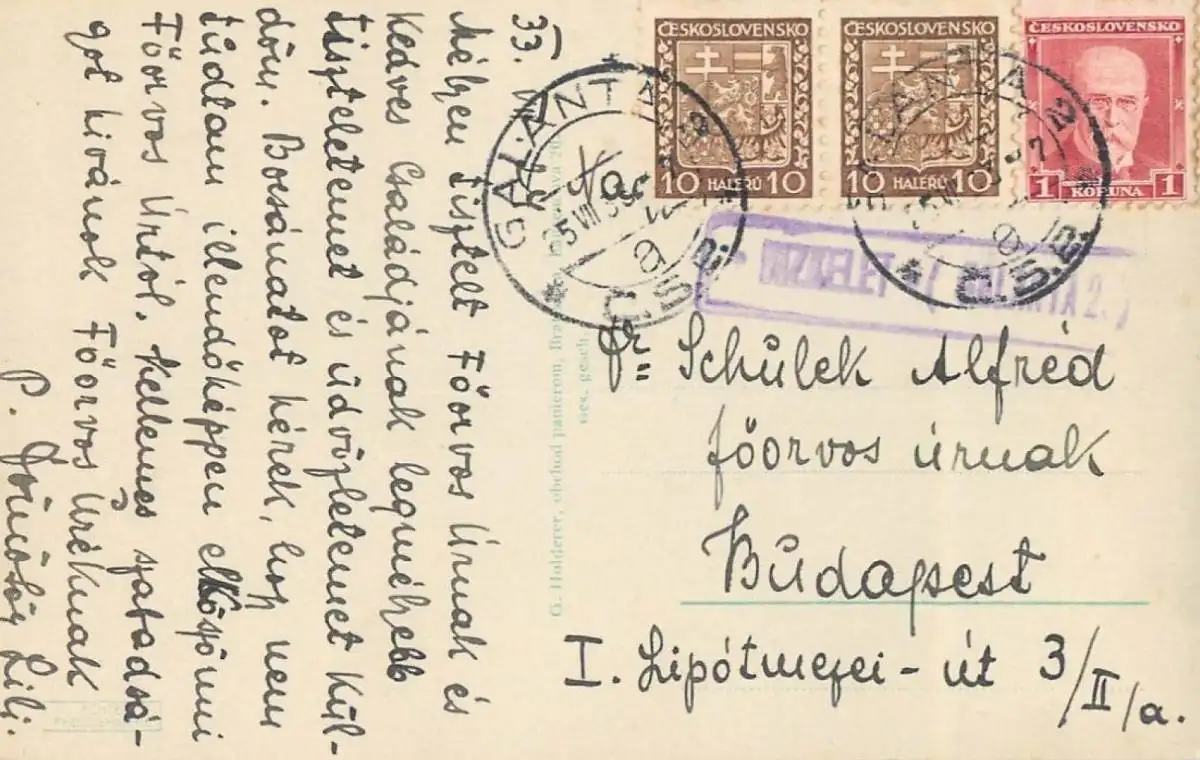 Mélyen tisztelt Főorvos Úrnak és
kedves Családjának legmélyebb
tiszteletemet és üdvözletemet kül-
döm. Bocsánatot kérek, hogy nem
tudtam illendőképpen elköszönni
Főorvos Úrtól. Kellemes szabadsá-
got kívánok Főorvos Úréknak
P. Lili.
ČESKOSLOVENSKO
10 HALÉRŮ 10
ČESKOSLOVENSKO
10 HALÉRŮ 10
ČESKOSLOVENSKO
1 KORUNA 1
GALANTA
Č.S.R.
GALANTA
Č.S.R.
G. Holderer, obchod papierom,
Ges. gesch.
Dr. Schulek Alfréd
főorvos úrnak
Budapest
I. Lipótmezei-út 3/II/a.